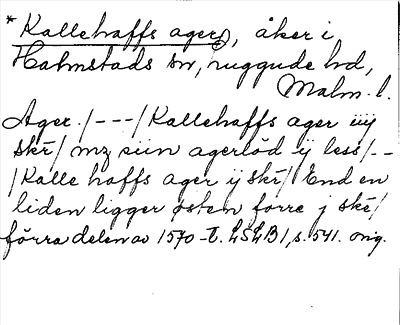 * Kallehaffs ager, åker i
Halmstads sn, Luggude hd,
Malm. l.
Ager. /---/ Kallehaffs ager iiij
skr̄ / mz siin agerlød ij less /--
/ Kalle haffs ager ij skr̄ / End en
liden ligger østen forre j skr̄ /
förra delen av 1570-t. LSLB 1, s. 541. orig.